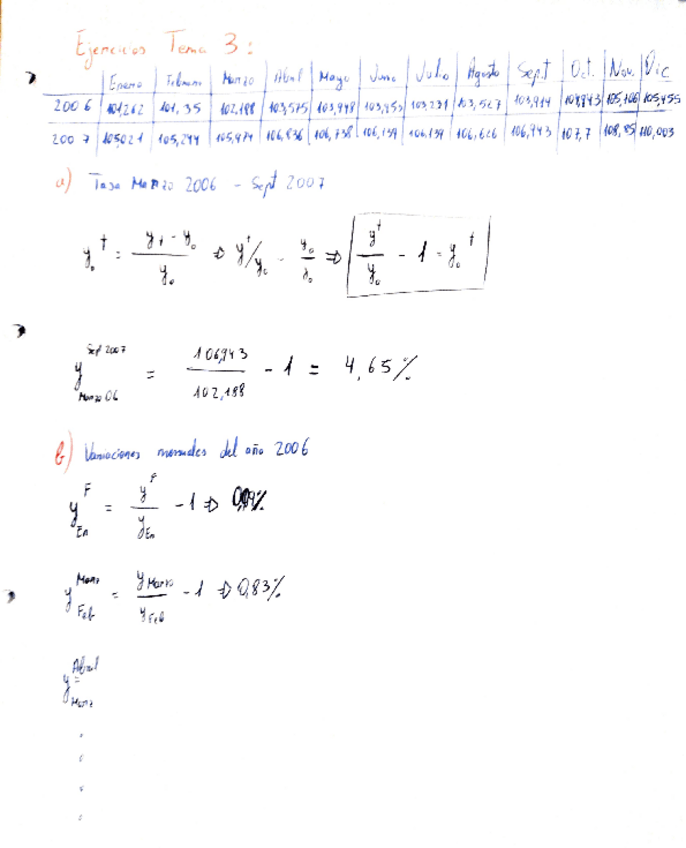 Ejercicios Tema 3:
Enero Febrero Marzo Abril Mayo Junio Julio Agosto Sept Oct. Nov. Dic
2006 101,262 101,35 102,188 103,575 103,948 103,231 103,527 103,914 105,166 105,455
2007 105,021 105,244 105,974 106,836 106,738 106,139 106,626 106,943 107,7 108,85 110,003
a) Tasa Marzo 2006 - Sept 2007
y₀ᵗ = yₜ - y₀ / y₀ ⇒ yᵗ/y₀ - y₀/y₀ ⇒ yᵗ/y₀ - 1 = y₀ᵗ
y Sept 2007 Marzo 06 = 106,943 / 102,188 - 1 = 4,65%
b) Variaciones mensuales del año 2006
y F En = y F / y En - 1 ⇒
y Marz Feb = y Marzo / y Feb - 1 ⇒ 0,83%
y Abril Marz =